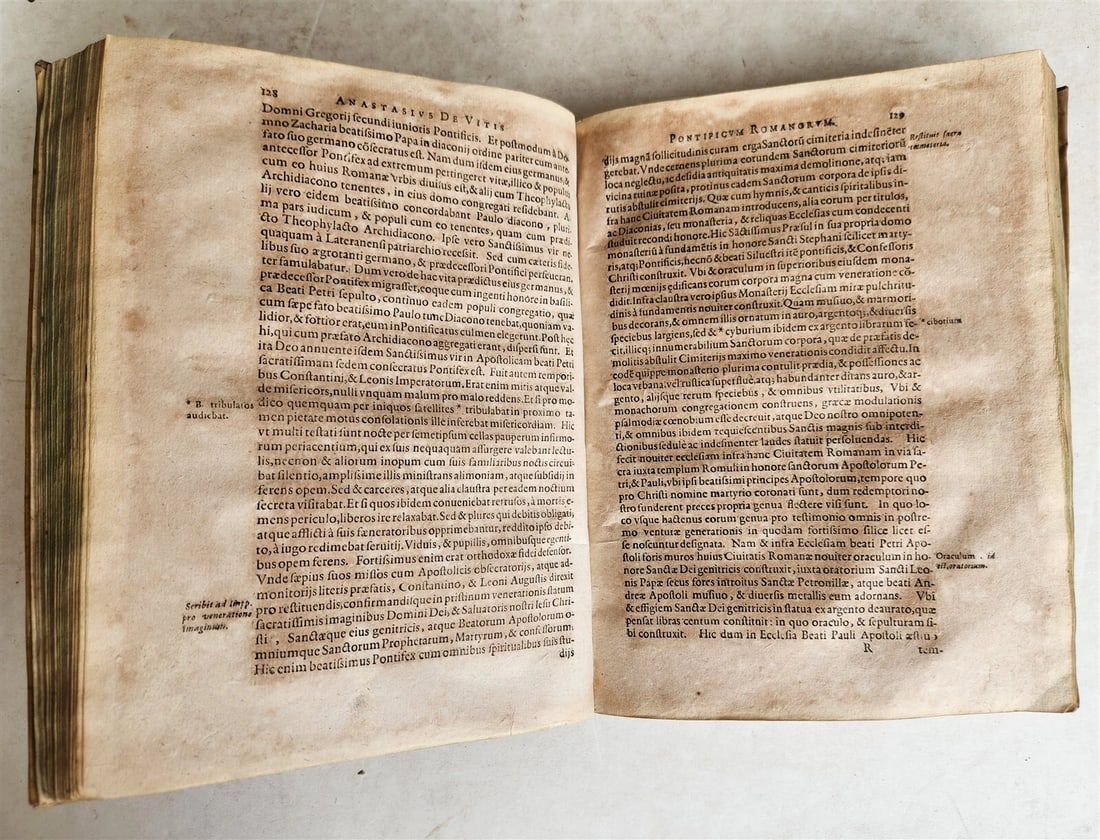 128
ANASTASIVS DE VITIS
Domni Gregorij ſecundi iunioris Pontificis. Et poſtmodum à Do-
mno Zacharia beatiſſimo Papa in diaconij ordine pariter cum ante
fato ſuo germano cōſecratus eſt. Nam dum iſdem eius germanus, &
anteceſſor Pontifex ad extremum pertingeret vitæ, illico & populus
cum eo huius Romanæ Vrbis diuiſus eſt, & alij cum Theophylacto
Archidiacono tenentes, in eius domo congregati reſidebant. A-
lij vero eidem beatiſſimo concordabant Paulo diacono, pluri-
ma pars iudicum, & populi cum eo tenentes, quam cum prædi-
cto Theophylacto Archidiacono. Ipſe vero Sanctiſſimus vir ne-
quaquam à Lateranenſi patriarchio receſſit. Sed cum cæteris fide-
libus ſuo ægrotanti germano, & prædeceſſori Pontifici perſeueran-
ter famulabatur. Dum vero de hac vita prædictus eius germanus, &
prædeceſſor Pontifex migraſſet, eoque cum ingenti honore in baſili-
ca Beati Petri ſepulto, continuo eadem populi congregatio, quæ
cum ſæpe fato beatiſſimo Paulo tunc Diacono tenebat, quoniam va-
lidior, & fortior erat, eum in Pontificatus culmen elegerunt. Poſt hæc
hi, qui cum præfato Archidiacono aggregati erant, diſperſi ſunt. Et
ita Deo annuente iſdem Sanctiſſimus vir in Apoſtolicam beati Petri
ſacratiſſimam ſedem conſecratus Pontifex eſt. Fuit autem tempori-
bus Conſtantini, & Leonis Imperatorum. Erat enim mitis atque val-
de miſericors, nulli vnquam malum pro malo reddens. Et ſi pro mo-
* B. tribulatos
audiebat.
dico quempiam per iniquos ſatellites * tribulabat in proximo ta-
men pietate motus conſolationis ille inferebat miſericordiam. Hic
vt multi teſtati ſunt nocte per ſemetipſum cellas pauperum infirmo-
rum periacentium, qui ex ſuis nequaquam aſſurgere valebant lectu-
lis, necnon & aliorum inopum cum ſuis familiaribus noctis circui-
bat ſilentio, ampliſſime illis miniſtrans alimoniam, atque ſubſidij in
ferens opem. Sed & carceres, atque alia clauſtra per eadem noctium
ſecreta viſitabat. Et ſi quos ibidem conueniebat retruſos, à mortis e-
mens periculo, liberos ire relaxabat. Sed & plures qui debitis obligati,
atque afflicti à ſuis fæneratoribus opprimebantur, reddito ipſo debi-
to, à iugo redimebat ſeruitij. Viduis, & pupillis, omnibuſque egenti-
bus opem ferens. Fortiſſimus enim erat orthodoxæ fidei defenſor.
Vnde ſæpius ſuos miſſos cum Apoſtolicis obſecratorijs, atque ad-
monitorijs literis præfatis, Conſtantino, & Leoni Auguſtis direxit
Scribit ad Impp.
pro veneratione
imaginum.
pro reſtituendis, confirmandiſque in priſtinum venerationis ſtatum
ſacratiſſimis imaginibus Domini Dei, & Saluatoris noſtri Ieſu Chri-
ſti, Sanctæque eius genitricis, atque Beatorum Apoſtolorum o-
mniumque Sanctorum Prophetarum, Martyrum, & confeſſorum.
Hic enim beatiſſimus Pontifex cum omnibus ſpiritualibus ſuis ſtu-
dijs
PONTIFICVM ROMANORVM.
129
dijs magnā ſollicitudinis curam erga Sanctorū cimiteria indeſinēter
Reſtituit ſacra
gerebat. Vnde cernens plurima eorundem Sanctorum cimiteriorū
loca neglectu, ac deſidia antiquitatis maxima demolitione, atq; iam
vicina ruinæ poſita, protinus eadem Sanctorum corpora de ipſis di-
rutis abſtulit cimiterijs. Quæ cum hymnis, & canticis ſpiritalibus in-
fra hanc Ciuitatem Romanam introducens, alia eorum per titulos,
ac Diaconias, ſeu monaſteria, & reliquas Eccleſias cum condecenti
ſtuduit recondi honore. Hic Sāctiſſimus Præſul in ſua propria domo
monaſteriū à fundamētis in honore Sancti Stephani ſcilicet marty-
ris, atq; Pontificis, hecnō & beati Silueſtri itē pontificis, & Confeſſoris
Chriſti conſtruxit. Vbi & oraculum in ſuperioribus eiuſdem mona-
ſterij mœnijs ędificans eorum corpora magna cum veneratione cō-
didit. Infra clauſtra vero ipſius Monaſterij Eccleſiam miræ pulchritu-
dinis à fundamentis nouiter conſtruxit. Quam muſiuo, & marmori-
bus decorans, & omnem illis ornatum in auro, argentoq; & diuerſis
ſpeciebus largiens, ſed & * cyburium ibidem ex argento librarum fe-
* cibotium
cit, illicq; innumerabilium Sanctorum corpora, quæ de præfatis de-
molitis abſtulit Cimiterijs maximo venerationis condidit affectu. In
eodē quippe monaſterio plurima contulit prædia, & poſſeſſiones ac
loca vrbana, vel ruſtica ſuperflue, atq; habundanter ditans auro, & ar-
gento, alijſque rerum ſpeciebus, & omnibus vtilitatibus, Vbi &
monachorum congregationem conſtruens, græcæ modulationis
pſalmodiæ cœnobium eſſe decreuit, atque Deo noſtro omnipoten-
ti, & omnibus ibidem requieſcentibus Sanctis magnis ſub interdi-
ctionibus ſedule ac indeſinenter laudes ſtatuit perſoluendas. Hic
fecit nouiter eccleſiam infra hanc Ciuitatem Romanam in via ſa-
cra iuxta templum Romuli in honore ſanctorum Apoſtolorum Pe-
tri, & Pauli, vbi ipſi beatiſſimi principes Apoſtolorum, tempore quo
pro Chriſti nomine martyrio coronati ſunt, dum redemptori no-
ſtro funderent preces propria genua flectere viſi ſunt. In quo lo-
co vſque hactenus eorum genua pro teſtimonio omnis in poſtre-
mo venturæ generationis in quodam fortiſſimo ſilice licet eſ-
ſe noſcuntur deſignata. Nam & infra Eccleſiam beati Petri Apo-
ſtoli foris muros huius Ciuitatis Romanæ nouiter oraculum in ho-
Oraculum. id
eſt, oratorium.
nore Sanctæ Dei genitricis conſtruxit, iuxta oratorium Sancti Leo-
nis Papæ ſecus fores introitus Sanctæ Petronillæ, atque beati An-
dreæ Apoſtoli muſiuo, & diuerſis metallis eum adornans. Vbi
& effigiem Sanctæ Dei genitricis in ſtatua ex argento deaurato, quæ
penſat libras centum conſtituit: in quo oraculo, & ſepulturam ſi-
bi conſtruxit. Hic dum in Eccleſia Beati Pauli Apoſtoli æſtiu
R
tem-